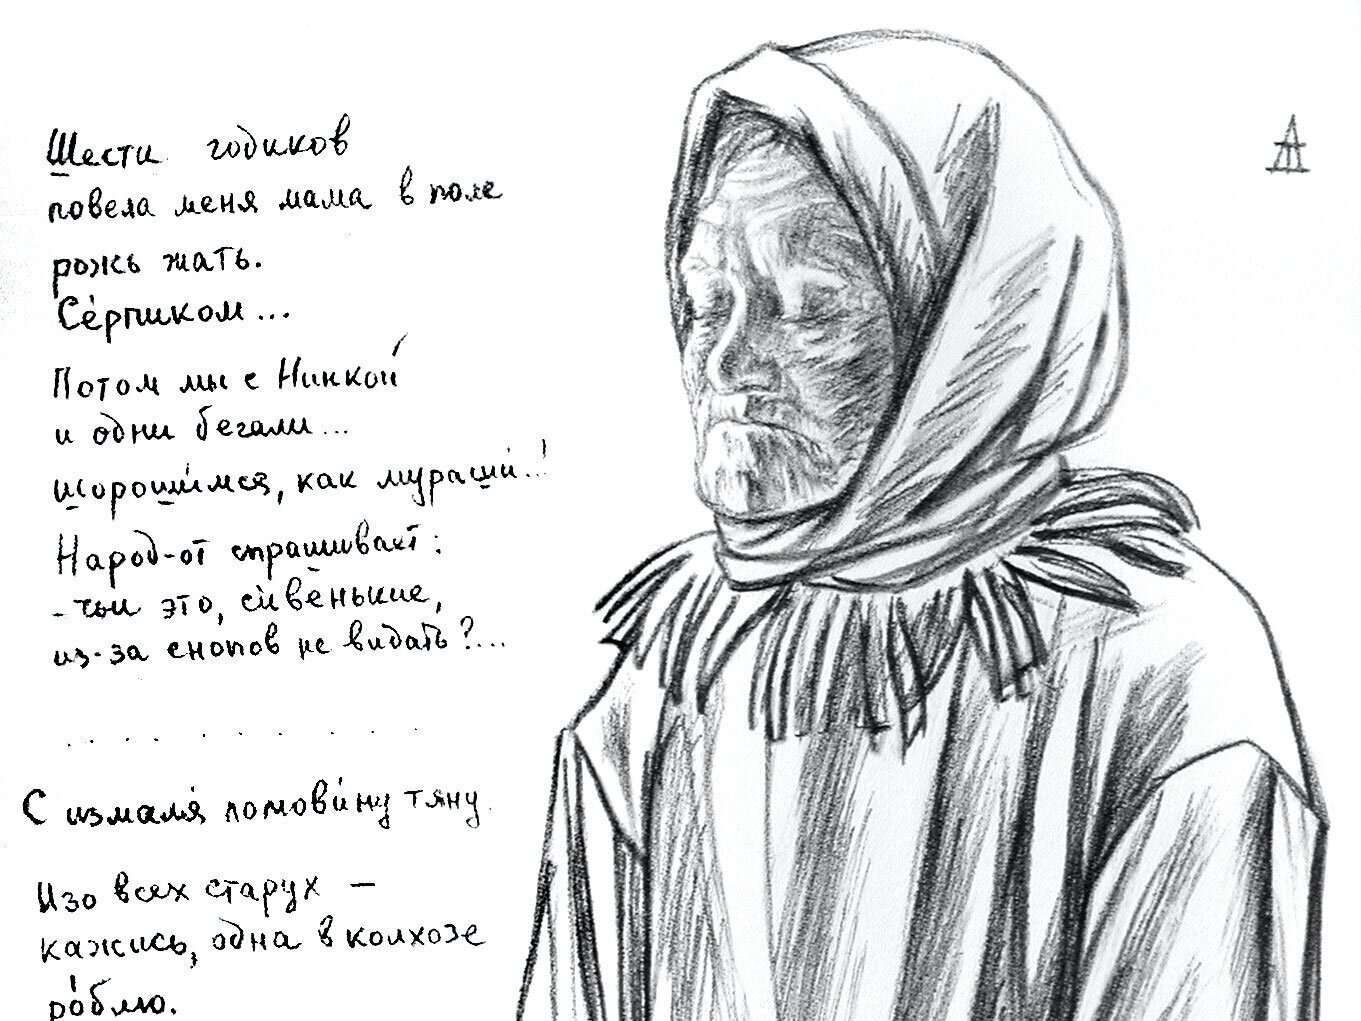 Шести годиков
повела меня мама в поле
рожь жать.
Се́рпиком...
Потом мы с Нинкой
и одни бегали...
шороши́мся, как мураши́..!
Народ-от спрашиват:
- чьи это, си́ве́нькие,
из-за снопов не видать?...
. . . . . . . . .
С измаля́ ломови́ну тяну.
Изо всех старух —
кажись, одна в колхозе
ро́блю.